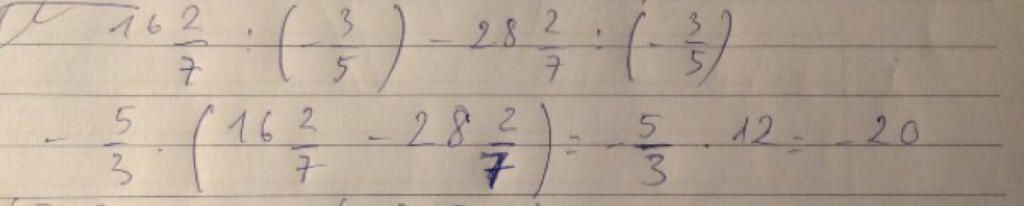 16 2/7 : (- 3/5) - 28 2/7 : (- 3/5)
- 5/3 · (16 2/7 - 28 2/7) = - 5/3 · 12 = - 20